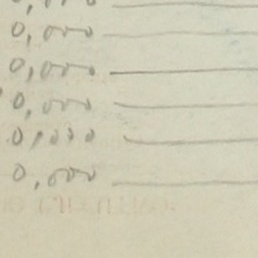 0,000
0,000
0,000
0,000
0,000
0,000